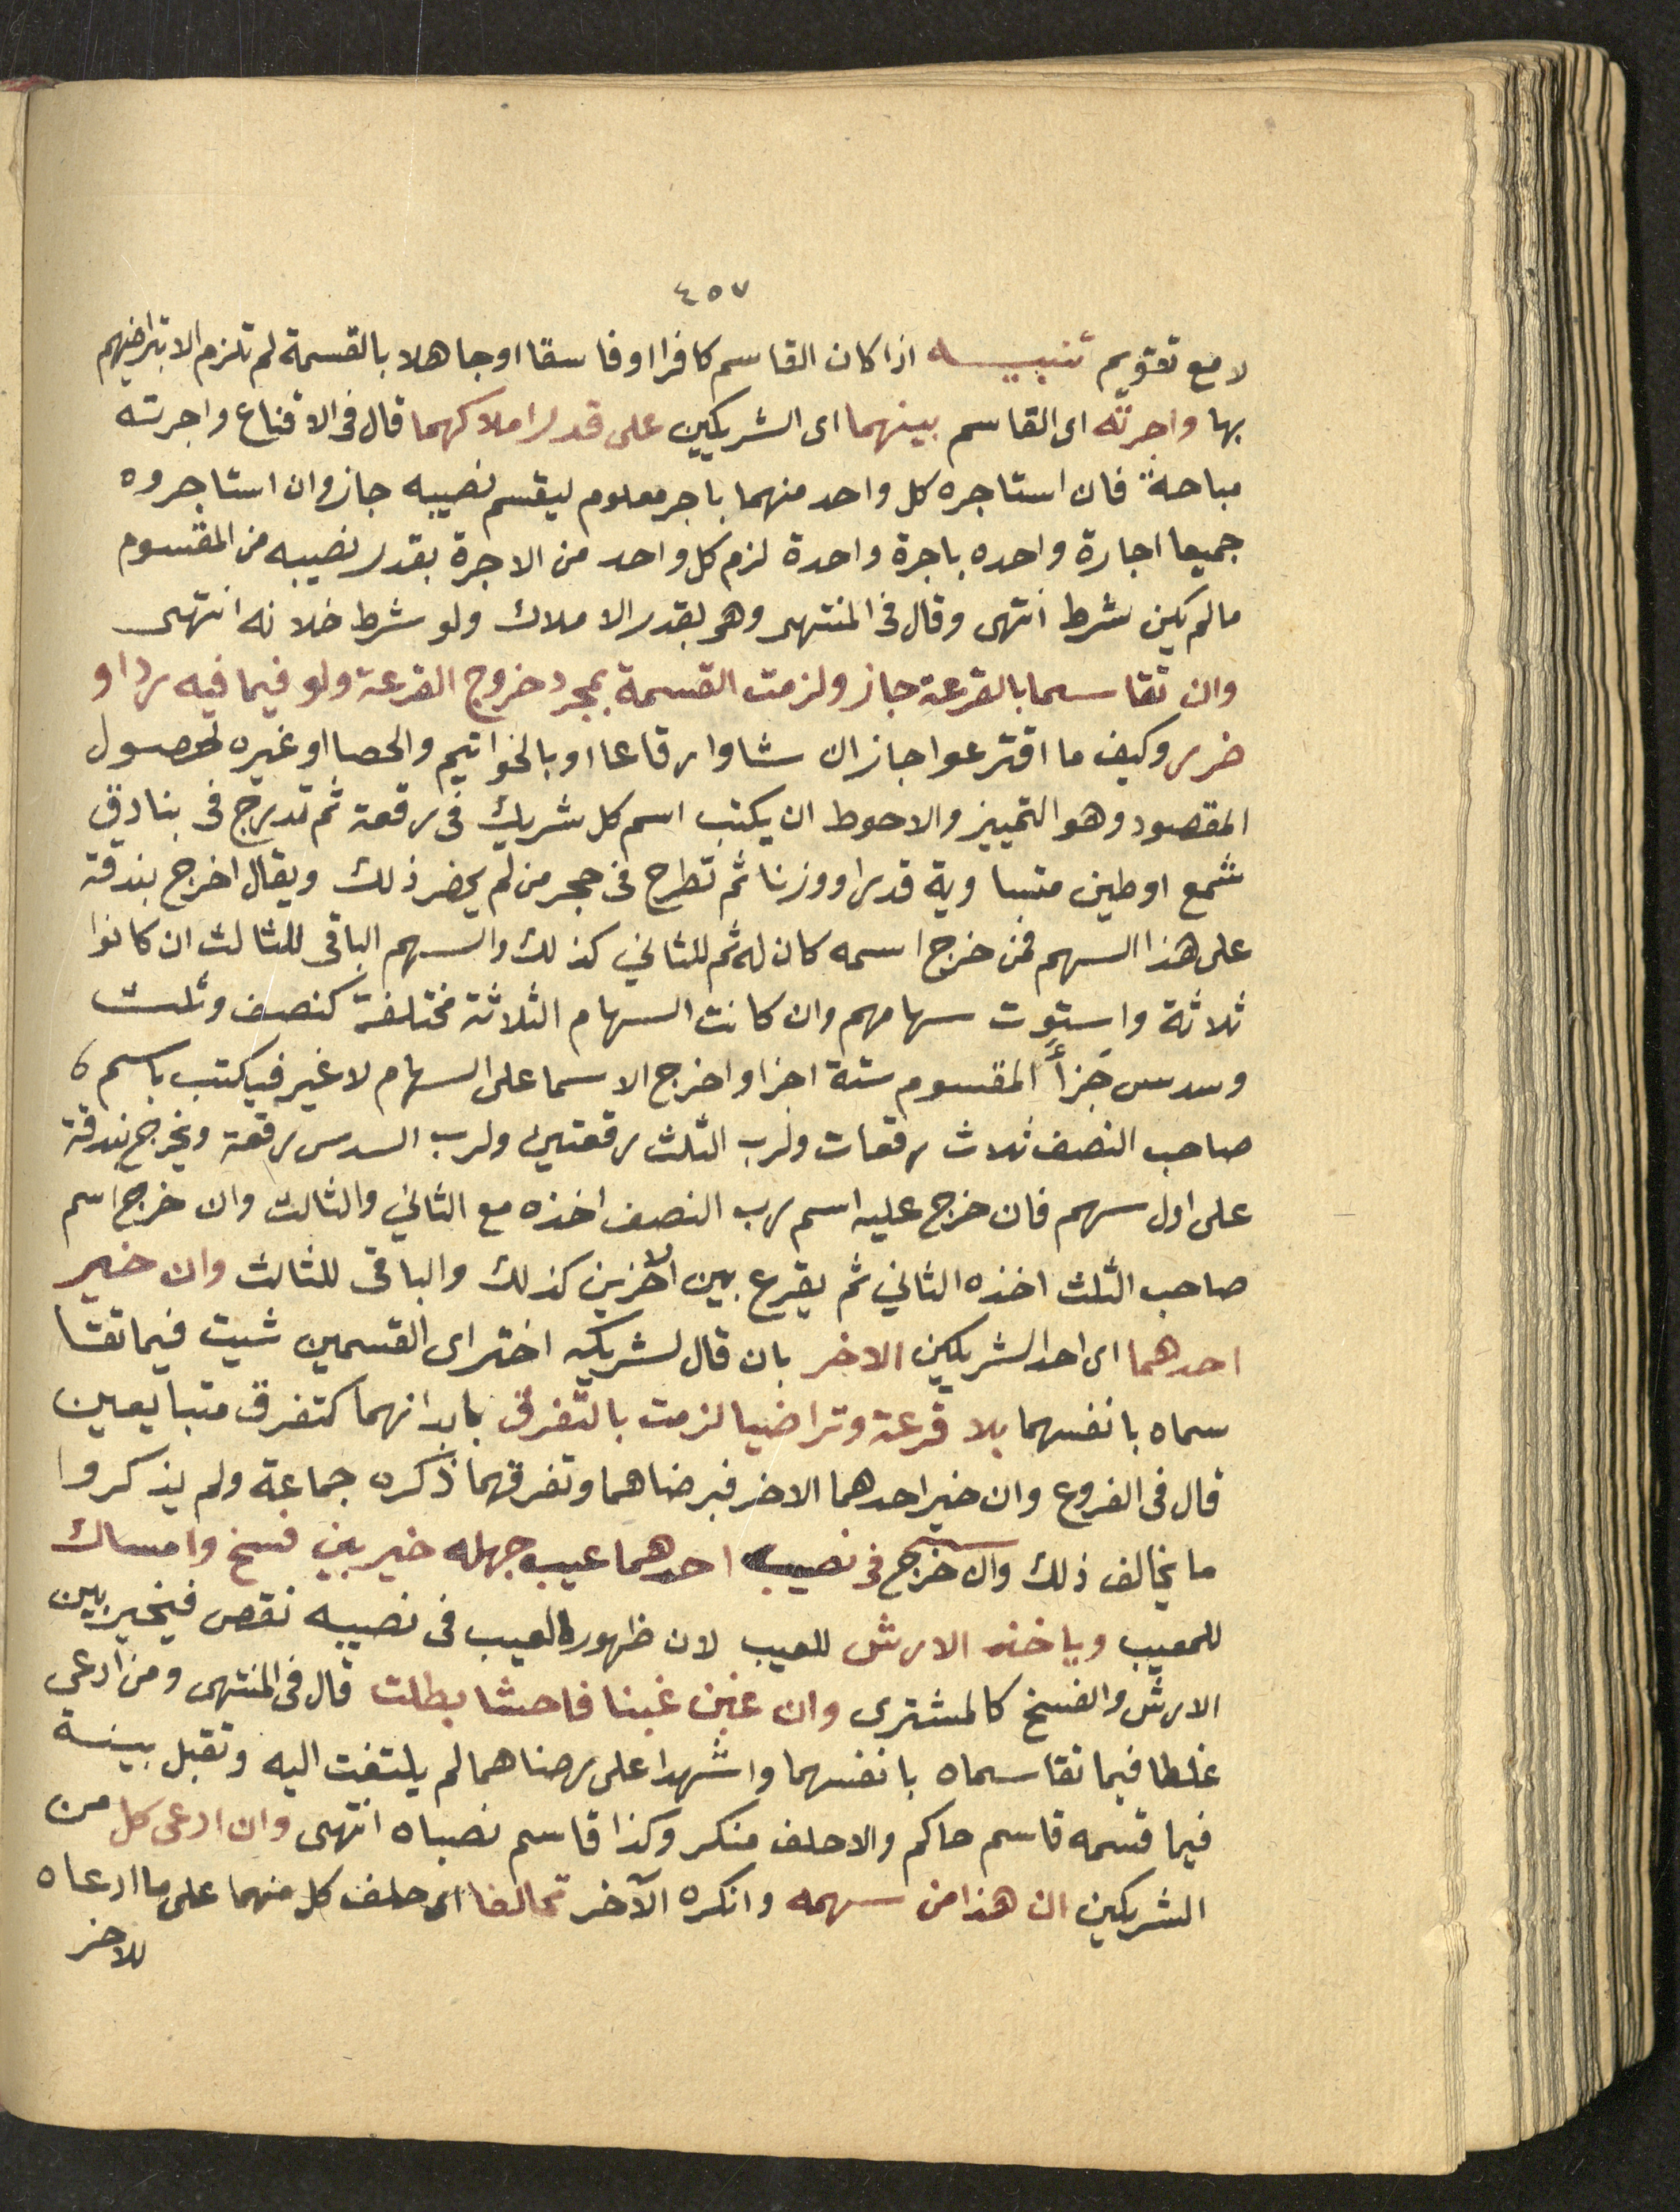 ٤٥٧
لا مع تقويم تنبيه اذا كان القاسم كافرا او فاسقا او جاهلا بالقسمة لم تلزم الا بتراضيهم
بها واجرته اى القاسم بينهما اى الشريكين على قدر املاكهما قال فى الاقناع واجرته
مباحة فان استاجره كل واحد منهما باجر معلوم ليقسم نصيبه جاز وان استاجروه
جميعا اجارة واحده باجرة واحدة لزم كل واحد من الاجرة بقدر نصيبه من المقسوم
مالم يكن شرط انتهى وقال فى المنتهى وهى بقدر الاملاك ولو شرط خلافه انتهى
وان تقاسما بالقرعة جاز ولزمت القسمة بمجرد خروج القرعة ولو فيما فيه رد او
ضرر وكيف ما اقترعوا جاز ان شاوا رقاعا او بالخواتيم والحصا او غيره لحصول
المقصود وهو التمييز والاحوط ان يكتب اسم كل شريك فى رقعة ثم تدرج فى بنادق
شمع او طين متساوية قدرا ووزنا ثم تطرح فى حجر من لم يحضر ذلك ويقال اخرج بندقة
على هذا السهم فمن خرج اسمه كان له ثم للثاني كذلك والسهم الباقى للثالث ان كانوا
ثلاثة واستوت سهامهم وان كانت السهام الثلاثة مختلفة كنصف وثلث
وسدس جزأ المقسوم ستة اجزا واخرج الاسما على السهام لا غير فيكتب باسم
صاحب النصف ثلاث رقعات ولرب الثلث رقعتين ولرب السدس رقعة ويخرج بندقة
على اول سهم فان خرج عليه اسم رب النصف اخذه مع الثاني والثالث وان خرج اسم
صاحب الثلث اخذه الثاني ثم يقرع بين الآخرين كذلك والباقى للثالث وان خير
احدهما اى احد الشريكين الاخر بان قال لشريكه اختر اى القسمين شيت فيما تقا
سماه بانفسهما بلا قرعة وتراضيا لزمت بالتفرق بابدانهما كتفرق متبايعين
قال فى الفروع وان خير احدهما الاخر فبرضاهما وتفرقهما ذكره جماعة ولم يذكروا
ما يخالف ذلك وان خرج فى نصيب احدهما عيب جهله خير بين فسخ وامساك
للمعيب وياخذ الارش للعيب لان ظهور العيب فى نصيبه نقص فيخير بين
الارش والفسخ كالمشترى وان غبن غبنا فاحشا بطلت قال فى المنتهى ومن ادعى
غلطا فيما تقاسماه بانفسهما واشهدا على رضاهما لم يلتفت اليه وتقبل ببينة
فيما قسمه قاسم حاكم والا حلف منكر وكذا قاسم نصباه انتهى وان ادعى كل من
الشريكين ان هذا من سهمه وانكره الآخر تحالفا اى حلف كل منهما على ما ادعاه
للاخر